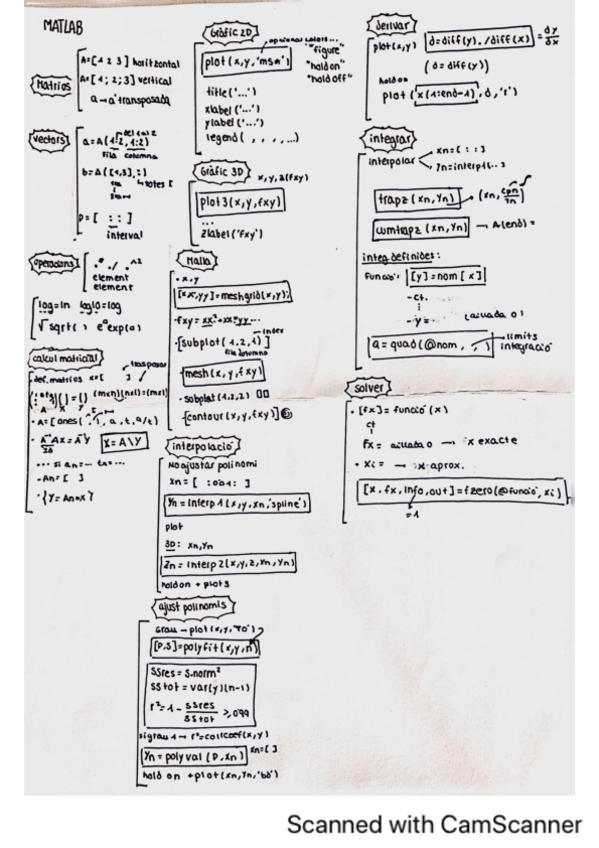 MATLAB
Matrius
A=[1 2 3] horitzontal
A=[1; 2; 3] vertical
a → a' transposada
vectors
a=A(1:2, 1:2)
fila columna
b=A([1,3],:)
totes
p=[ : : ]
interval
operacions
.* ./ .^2
element
element
log=ln log10=log
sqrt( ) exp(a)
calcul matricial
trasposar
def. matrius x=[ ]
(mxn)(nx1)=(mx1)
A x y
A=[ones( ,1), a, t, a/t]
X=A\Y
-An=[ ]
-{Y=An*X}
Gràfic 2D
opcional colors...
plot(x,y,'ms*')
"figure"
"hold on"
"hold off"
title('...')
xlabel('...')
ylabel('...')
legend( , , , ...)
Gràfic 3D
x,y,z(fxy)
plot3(x,y,fxy)
...
zlabel('fxy')
Malla
· x,y
[xx,yy]=meshgrid(x,y);
·fxy=xx.²+xx.*yy...
index
·[subplot(1,2,1)]
fila columna
-mesh(x,y,fxy)
·subplot(1,2,2)
-[contour(x,y,fxy)]
interpolació
No ajustar polinomi
xn=[ :0'01: ]
Yn=interp1(x,y,xn,'spline')
plot
3D: xn,yn
Zn=interp2(x,y,z,xn,yn)
hold on + plot3
ajust polinomis
Grau → plot(x,y,'ro')
[P,S]=polyfit(x,y,n)
SSres=S.norm²
SStot=var(y)(n-1)
r²=1- SSres/SStot ≥0'99
si grau 1 → r²=corrcoef(x,y)
Yn=polyval(P,xn) xn=[ ]
hold on +plot(xn,yn,'b')
derivar
plot(x,y) d=diff(y)./diff(x) = dy/dx
(d=diff(y))
hold on
plot(x(1:end-1),d,'r')
integrar
interpolar
xn=[ : : ]
Yn=interp1(...)
trapz(xn,Yn)
cumtrapz(xn,Yn) → A(end)=
integ. definides:
Funció: [y]=nom[x]
-ct.
-y= (aillada 0)
a=quad(@nom, , )
límits
integració
solver
· [fx]=funció(x)
ct
fx = aillada 0 → x exacte
· xi= → x aprox.
[x,fx,info,out]=fzero(@funció,xi)
=1
Scanned with CamScanner